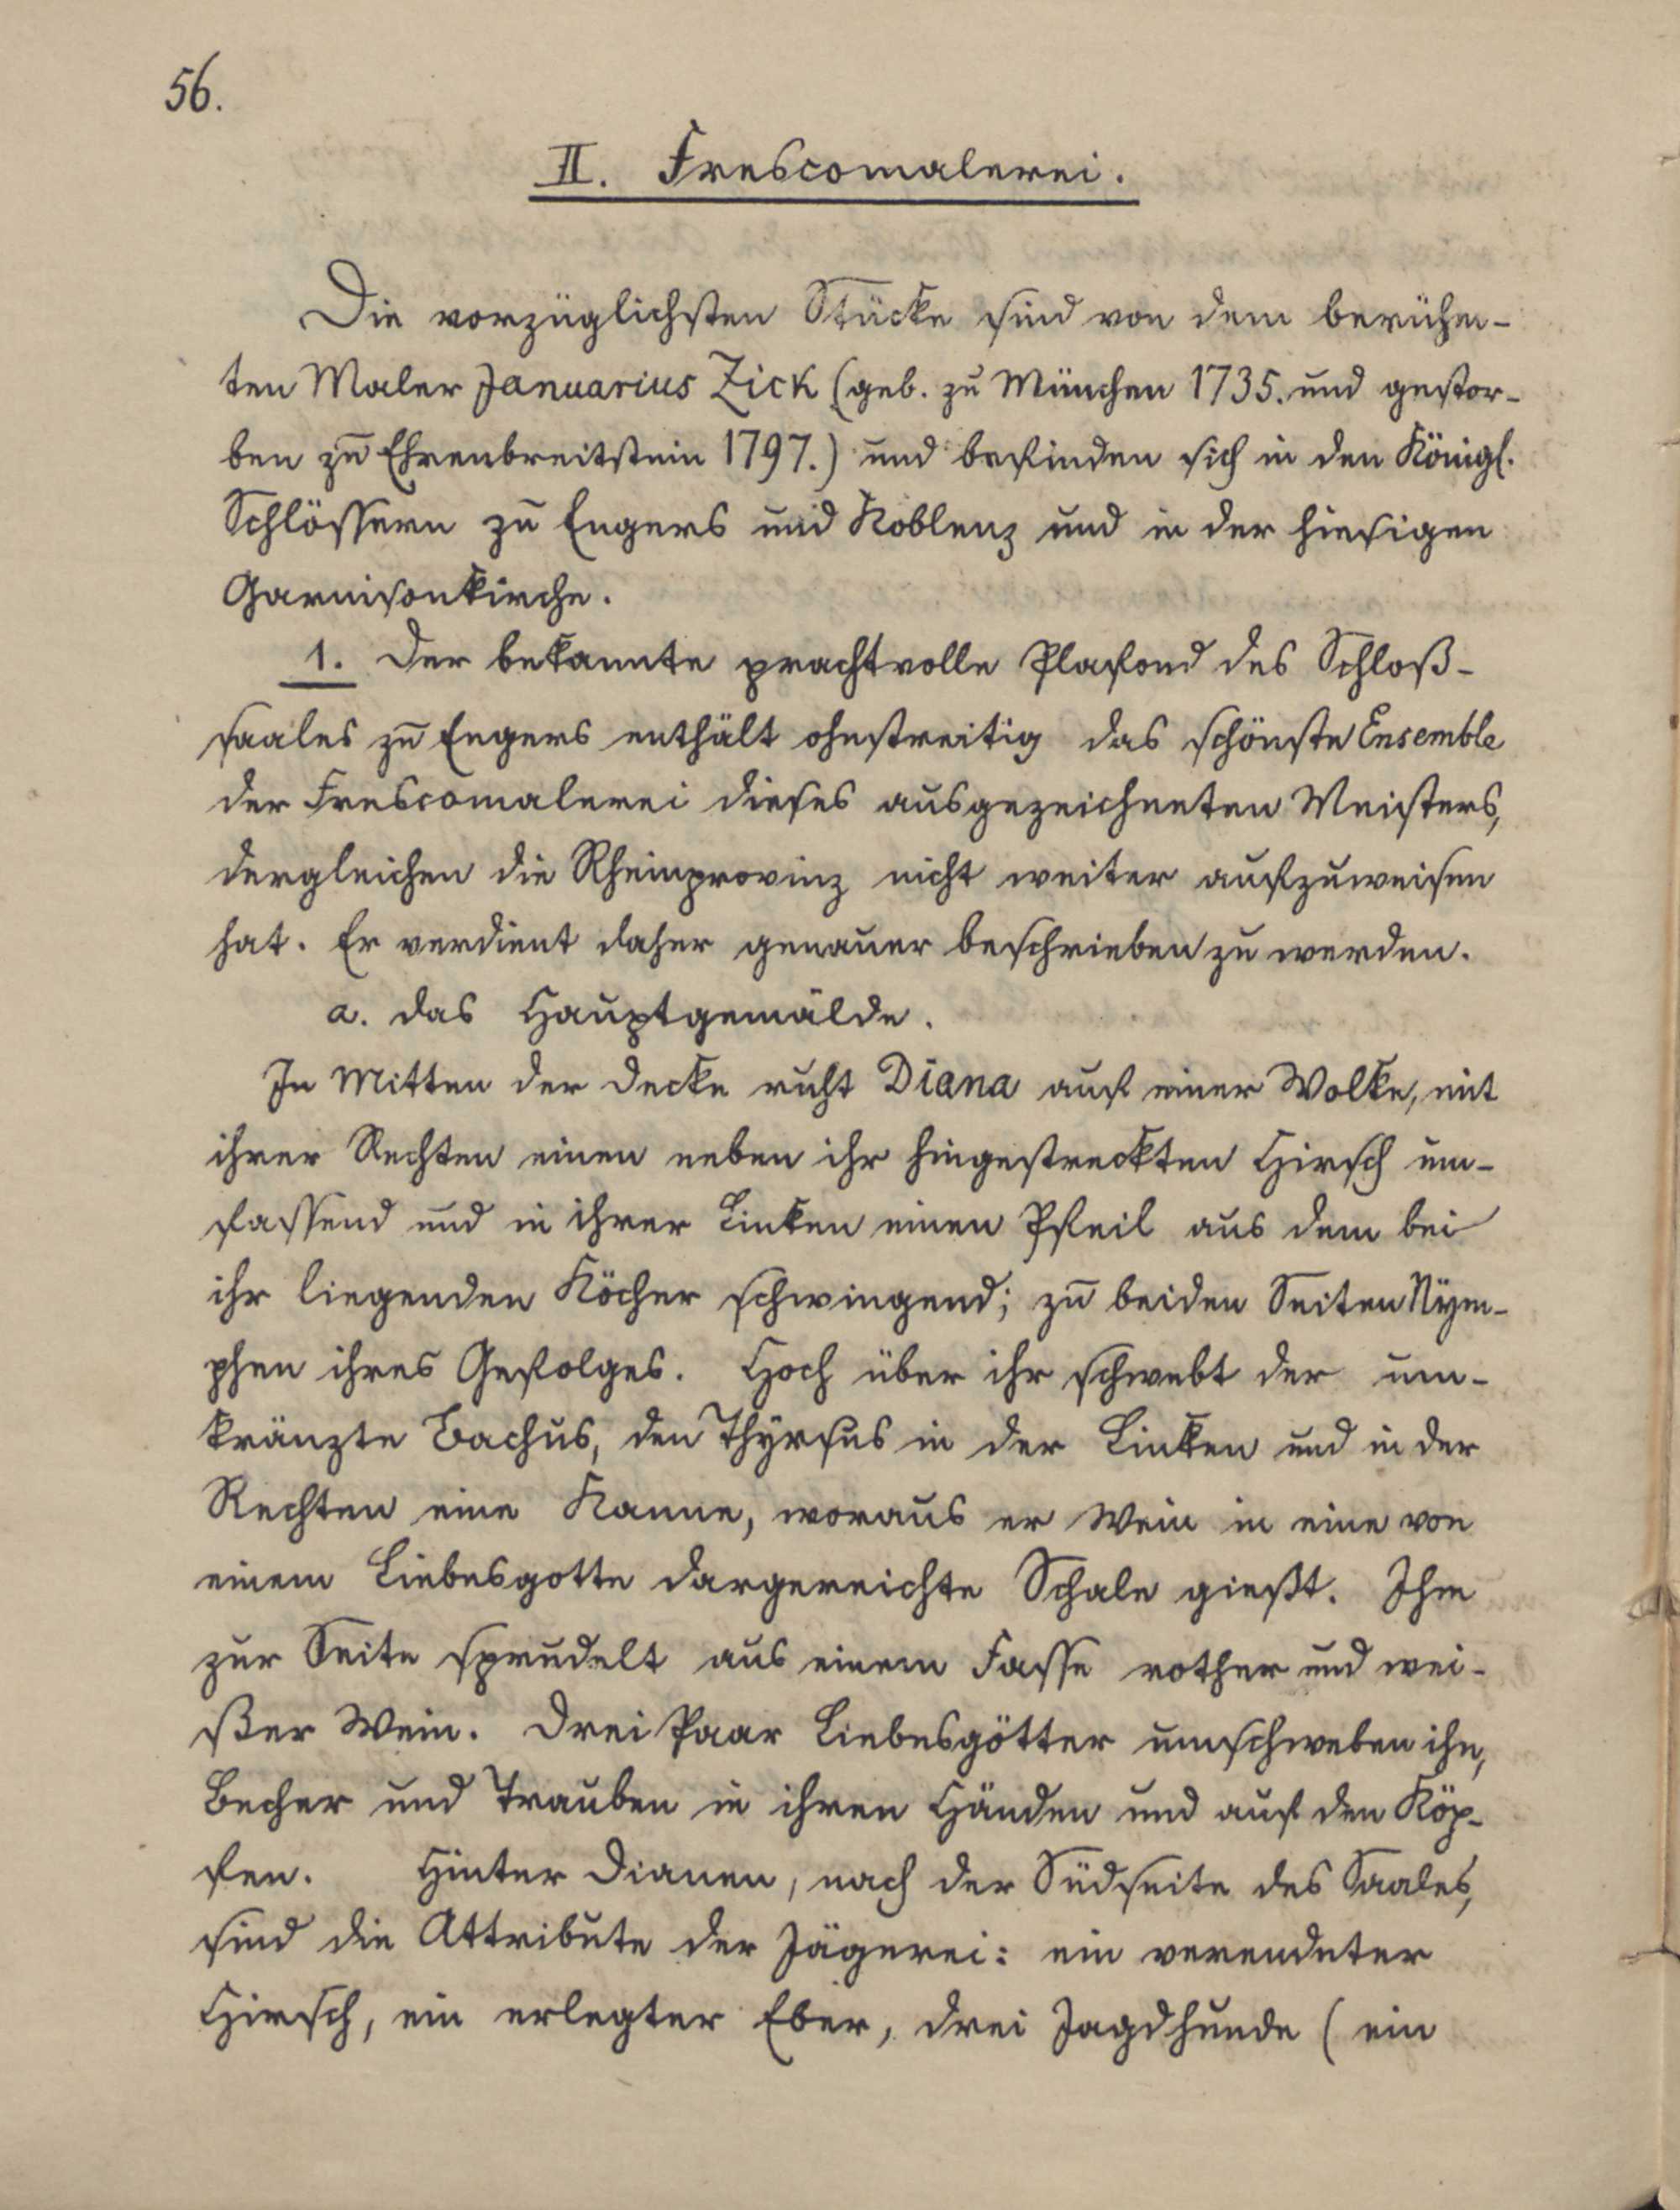 56.
II. Frescomalerei.
Die vorzüglichsten Stücke sind von dem berühm-
ten Maler Januarius Zick (geb. zu München 1735. und gestor-
ben zu Ehrenbreitstein 1797.) und befinden sich in den Königl.
Schlössern zu Engers und Koblenz und in der hiesigen
Garnisonkirche.
1. Der bekannte prachtvolle Plafond des Schloß-
saales zu Engers enthält ohnstreitig das schönste Ensemble
der Frescomalerei dieses ausgezeichneten Meisters,
dergleichen die Rheinprovinz nicht weiter aufzuweisen
hat. Er verdient daher genauer beschrieben zu werden.
a. das Hauptgemälde.
In Mitten der Decke ruht Diana auf einer Wolke, mit
ihrer Rechten einen neben ihr hingestreckten Hirsch um-
fassend und in ihrer Linken einen Pfeil aus dem bei
ihr liegenden Köcher schwingend; zu beiden Seiten Nÿm-
phen ihres Gefolges. Hoch über ihr schwebt der um-
kränzte Bachus, den Thÿrsus in der Linken und in der
Rechten eine Kanne, woraus er Wein in eine von
einem Liebesgotte dargereichte Schale gießt. Ihm
zur Seite sprudelt aus einem Fasse rother und wei-
ßer Wein. Drei Paar Liebesgötter umschweben ihn,
Becher und Trauben in ihren Händen und auf den Köp-
fen. Hinter Dianen, nach der Südseite des Saales,
sind die Attribute der Jägerei: ein verendeter
Hirsch, ein erlegter Eber, drei Jagdhunde (ein